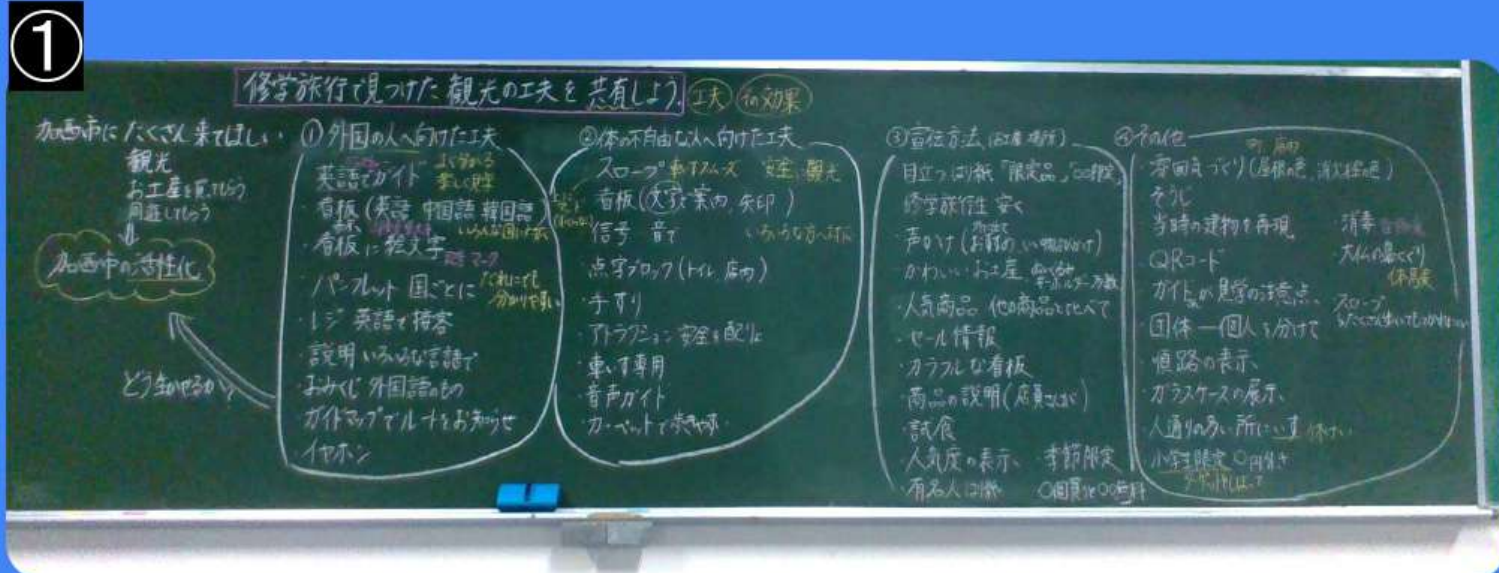 ①
修学旅行で見つけた観光の工夫を共有しよう。 工夫 その効果
加西市にたくさん来てほしい
観光
お土産を買ってもらう
周遊してもらう
↓
加西市の活性化
どう生かせるか?
① 外国の人へ向けた工夫
英語でガイド よく分かる
楽しく
・看板(英語、中国語、韓国語)
いろんな国に
・看板に絵文字 マーク
・パンフレット 国ごとに だれにでも
分かりやすい
・レジ 英語で接客
・説明 いろいろな言語で
・おみくじ 外国語のもの
・ガイドマップでルートをお知らせ
・イヤホン
②体の不自由な人へ向けた工夫
スロープ 車いすスムーズ 安全 観光
・看板(文字で案内、矢印)
・信号 音で いろいろな方へ
・点字ブロック(トイレ、店内)
・手すり
・アトラクション 安全を配りょ
・車いす専用
・音声ガイド
・カーペットで歩きやすい
③宣伝方法(お土産 場所)
・目立つはり紙「限定品」「○○限定」
修学旅行生 安く
・声かけ
・かわいいお土産 ぬいぐるみ
キーホルダー
・人気商品 他の商品とくらべて
・セール情報
・カラフルな看板
・商品の説明(店員さんが)
・試食
・人気度の表示、 季節限定
・有名人 ○個買うと○○無料
④その他
・雰囲気づくり(屋根の色、消火栓の色)
・そうじ
・当時の建物を再現 消毒
・QRコード 体験
・ガイドさんが見学の注意点、 スロープ
・団体―個人を分けて
・順路の表示
・ガラスケースの展示、
・人通りの多い所にいす 休けい
・小学生限定 ○円引き